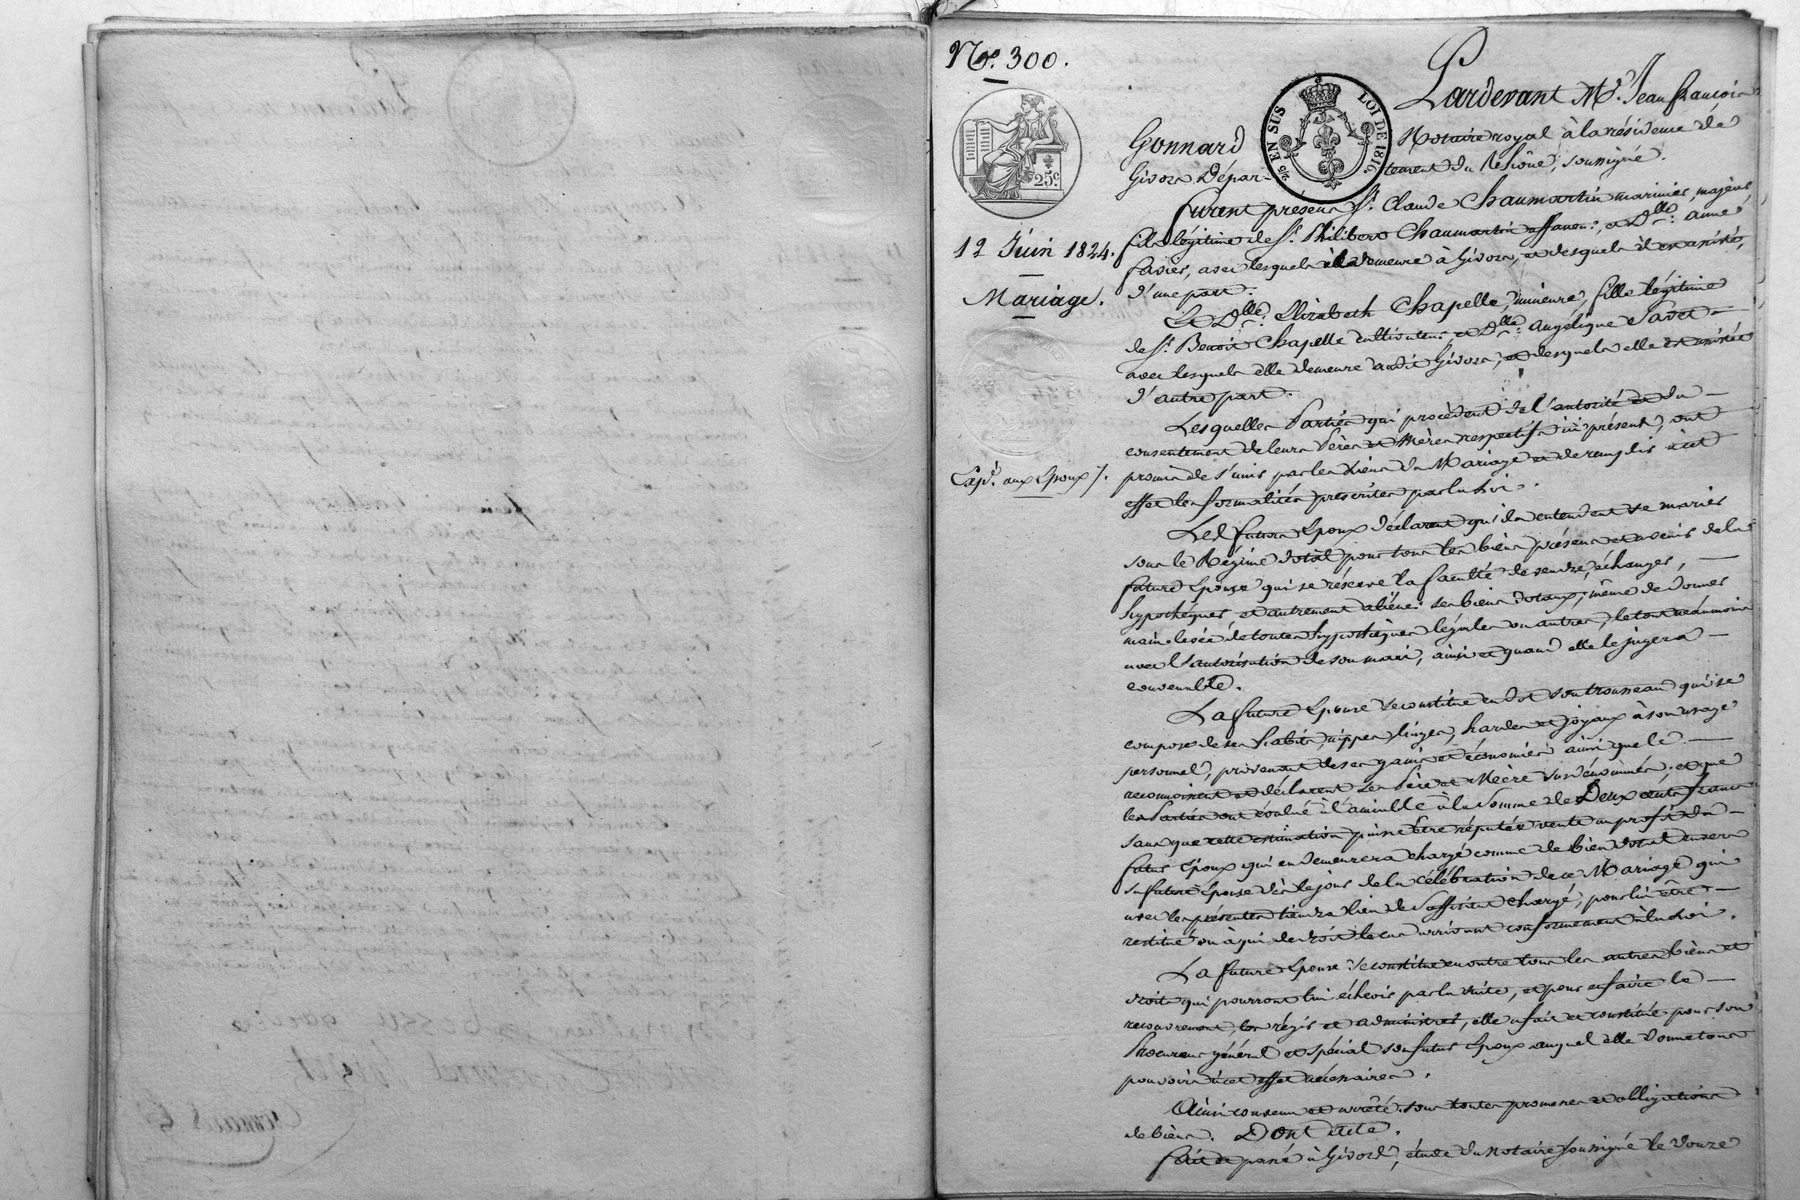 No. 300.
25 EN SUS LOI DE 1816
25c
12 Juin 1824.
Mariage.
Expé. aux Epoux /.
Pardevant Me. Jean françois
Gonnard Notaire royal à la résidence de
Givors Département du Rhône, soussigné.
furent présens Sr. Claude Chaumartin marinier, majeur
fils légitime de Sr. Philibert Chaumartin affaneur, et Dlle. anne
favier, avec lesquels il demeure à Givors, et desquels il est assisté,
d'une part.
Et Dlle. Elizabeth Chapelle, mineure, fille légitime
de Sr. Benoit Chapelle cultivateur, et Dlle. angélique Savet
avec lesquels elle demeure audit Givors, et desquels elle est assistée
d'autre part.
Lesquelles Parties qui procèdent de l'autorité et du
consentement de leurs Pères et Mères respectifs ici présens, ont
promis de s'unir par les Liens du Mariage et de remplir à cet
effet les formalités prescrites par la Loi.
Les futurs Epoux déclarent qu'ils entendent se marier
sous le Régime dotal pour tous les biens présens et avenir de la
future Epouse qui se réserve la faculté de vendre, échanger,
hypothéquer, et autrement aliéner ses biens dotaux; même de donner
main levée de toutes hypothèques légales ou autres, le tout néanmoins
avec l'autorisation de son mari, ainsi et quand elle le jugera
convenable.
La future Epouse se constitue en dot son trousseau qui se
compose de ses habits, nippes, linges, hardes et joyaux à son usage
personnel, provenant de ses gains et économies ainsi que le
reconnoissent et déclarent ses Père et Mère susdénommés; et que
les Parties ont évalué à l'amiable à la Somme de Deux cents francs
sans que cette estimation puisse être réputée vente au profit du
futur Epoux qui en demeurera chargé comme de bien dotal envers
sa future Epouse dès le jour de la célébration de ce Mariage qui
avec les présentes tiendra lieu de suffisant chargé, pour lui être
restitué ou à qui de droit le cas arrivant conformément à la Loi.
La future Epouse se constitue en outre tous les autres biens et
droits qui pourront lui échoir par la suite, et pour en faire le
recouvrement, les régir et administrer, elle a fait et constitué pour son
Procureur général et spécial son futur Epoux auquel elle donne tous
pouvoirs à cet effet nécessaires.
Ainsi convenu et arrêté sous toutes promesses et obligations
de biens. Dont acte.
fait et passé à Givors, étude du Notaire soussigné le douze